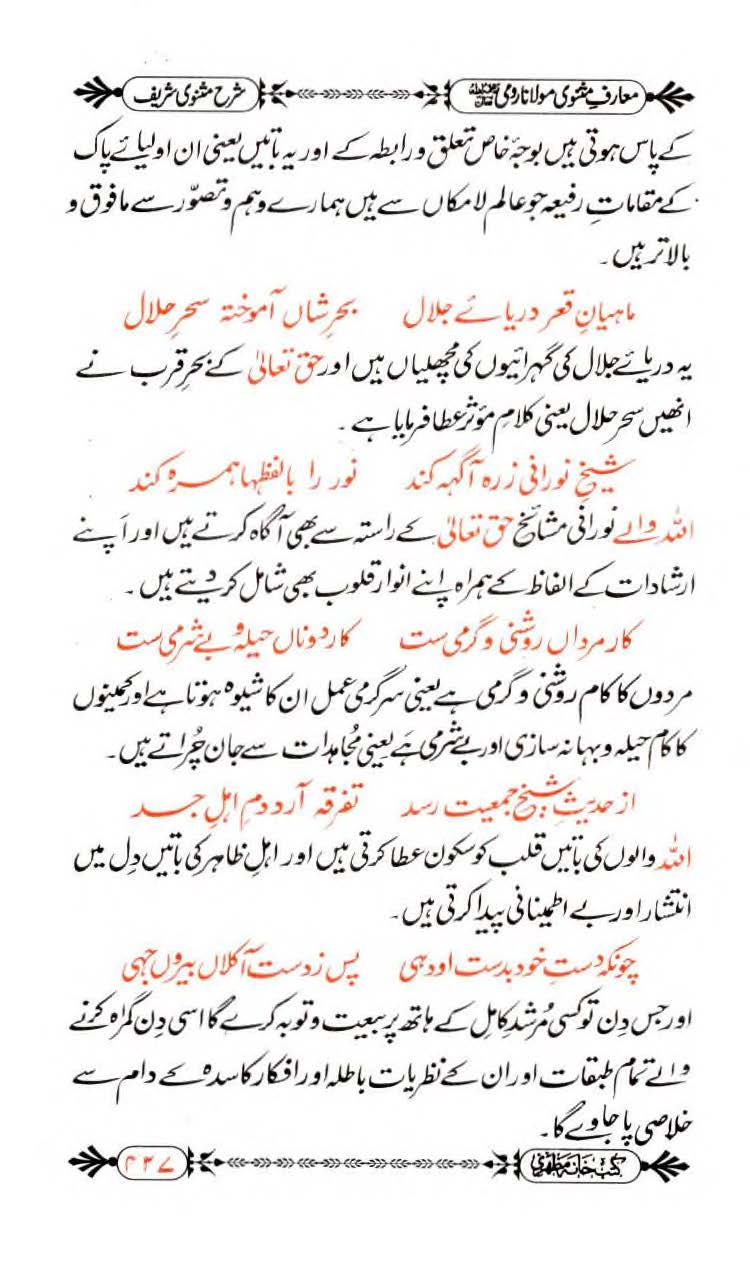 معارفِ مثنوی مولانا رومی رحمۃ اللہ علیہ
شرح مثنوی شریف
کے پاس ہوتی ہیں بوجۂ خاص تعلق و رابطہ کے اور یہ باتیں یعنی ان اولیائے پاک
کے مقاماتِ رفیعہ جو عالم لامکاں سے ہیں ہمارے وہم و تصوّر سے مافوق و
بالاتر ہیں۔
ماہیانِ قعر دریائے جلال بحرِ شاں آموختہ سحرِ حلال
یہ دریائے جلال کی گہرائیوں کی مچھلیاں ہیں اور حق تعالیٰ کے بحرِ قرب نے
انھیں سحرِ حلال یعنی کلامِ مؤثر عطا فرمایا ہے۔
شیخِ نورانی زرہ آگہہ کند نور را با لفظہا ہمرہ کند
اللہ والے نورانی مشائخ حق تعالیٰ کے راستہ سے بھی آگاہ کرتے ہیں اور اَپنے
ارشادات کے الفاظ کے ہمراہ اپنے انوارِ قلوب بھی شامل کردیتے ہیں۔
کارِ مرداں روشنی و گرمی ست کارِ دوناں حیلہ و بے شرمی ست
مردوں کا کام روشنی و گرمی ہے یعنی سرگرمی عمل ان کا شیوہ ہوتا ہے اور کمینوں
کا کام حیلہ و بہانہ سازی اور بے شرمی ہَے یعنی مُجاہدات سے جان چُراتے ہیں۔
از حدیثِ شیخ جمعیت رسد تفرقہ آرد دمِ اہلِ جسد
اللہ والوں کی باتیں قلب کو سکون عطا کرتی ہیں اور اہلِ ظاہر کی باتیں دِل میں
انتشار اور بے اطمینانی پیدا کرتی ہیں۔
چونکہ دستِ خود بدست او دہی پس ز دست آکلاں بیروں جہی
اور جس دِن تو کسی مُرشدِ کامِل کے ہاتھ پر بیعت و توبہ کرے گا اسی دِن گمراہ کرنے
والے تمام طبقات اور ان کے نظریات باطلہ اور افکار کاسدہ کے دام سے
خلاصی پا جاوے گا۔
کتب خانہ مظہری
۴۳۷